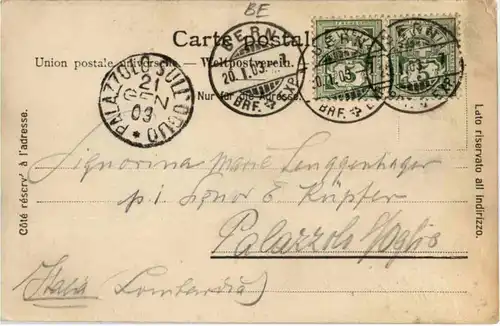 BE
Carte postale.
Union postale universelle. — Weltpostverein.
Nur für die Adresse.
BERN
20.I.03.
BRF. EXP.
BERN
BRF.
BERN
5
PALAZZOLO SULL'OGLIO
21
03
Côté réservé à l'adresse.
Lato riservato all indirizzo.
Signorina Marie Langgenhager
p/i Signor E Küpfer
Palazzolo s/Oglio
Italia (Lombardia)